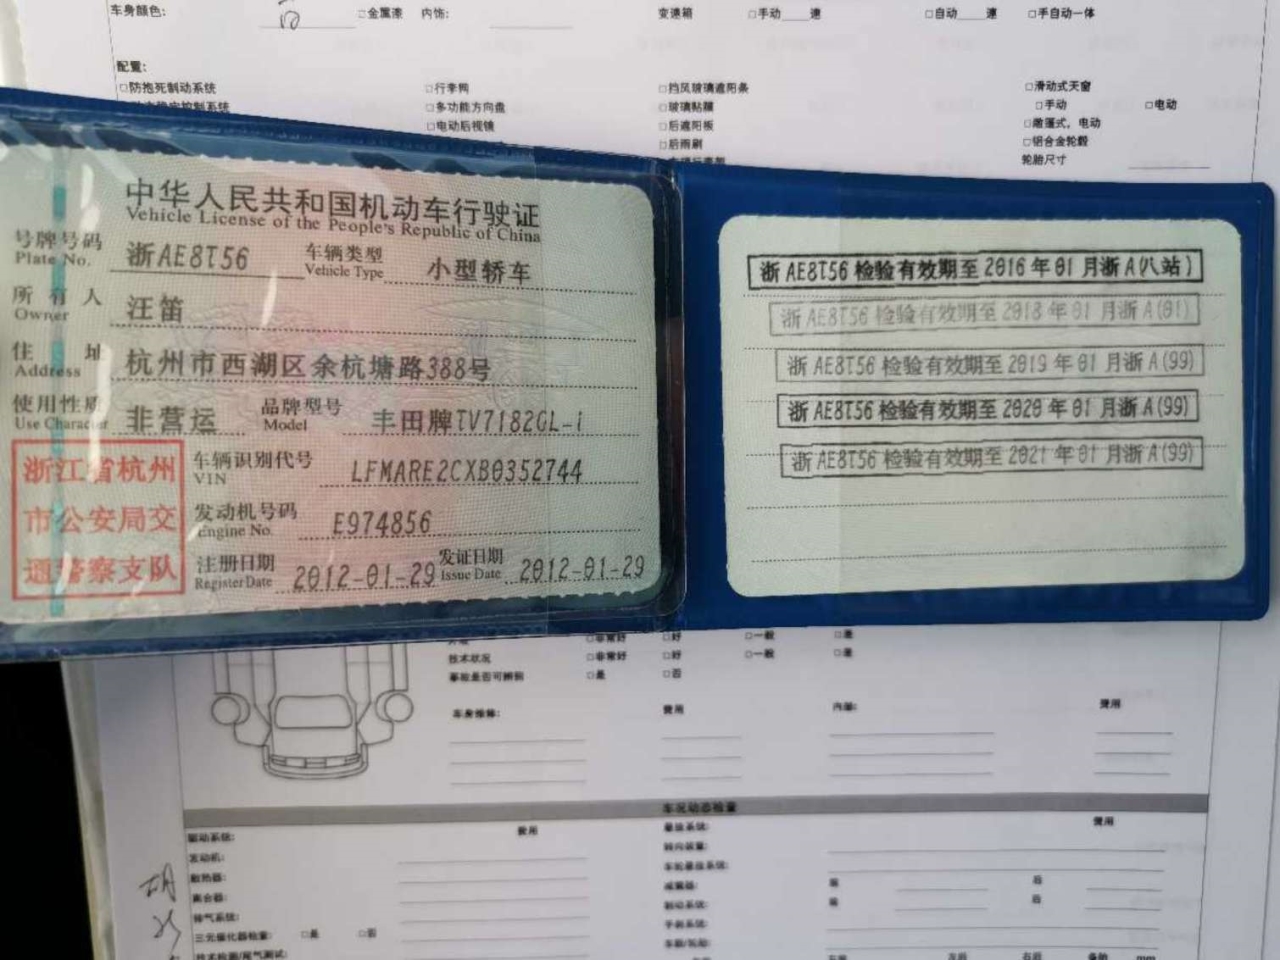 车身颜色: 白 □金属漆 内饰: 变速箱 □手动 速 □自动 速 □手自动一体
配置:
□防抱死制动系统 □行李网 □挡风玻璃遮阳条 □滑动式天窗
□多功能方向盘 □玻璃贴膜 □手动 □电动
□电动后视镜 □后遮阳板 □敞篷式，电动
□后雨刷 □铝合金轮毂
轮胎尺寸
中华人民共和国机动车行驶证
Vehicle License of the People's Republic of China
号牌号码 浙AE8T56 车辆类型 小型轿车
Plate No. Vehicle Type
所有人 汪笛
Owner
住址 杭州市西湖区余杭塘路388号
Address
使用性质 非营运 品牌型号 丰田牌TV7182GL-i
Use Character Model
浙江省杭州
市公安局交
通警察支队
车辆识别代号 LFMARE2CXB0352744
VIN
发动机号码 E974856
Engine No.
注册日期 2012-01-29 发证日期 2012-01-29
Register Date Issue Date
浙AE8T56检验有效期至2016年01月浙A(八站)
浙AE8T56检验有效期至2018年01月浙A(01)
浙AE8T56检验有效期至2019年01月浙A(99)
浙AE8T56检验有效期至2020年01月浙A(99)
浙AE8T56检验有效期至2021年01月浙A(99)
□非常好 □好 □一般 □差
技术状况 □非常好 □好 □一般 □差
事故是否可辨别 □是 □否
车身维修: 费用 内部: 费用
车况动态检查
驱动系统: 费用 悬挂系统: 费用
发动机: 转向装置:
散热器: 车轮悬挂系统:
离合器: 减震器: 前 后
排气系统: 制动系统: 前 后
三元催化器检查: □是 □否 手刹系统:
技术检测/尾气测试: 车胎/轮毂:
左前 左后 右后 备胎 mm